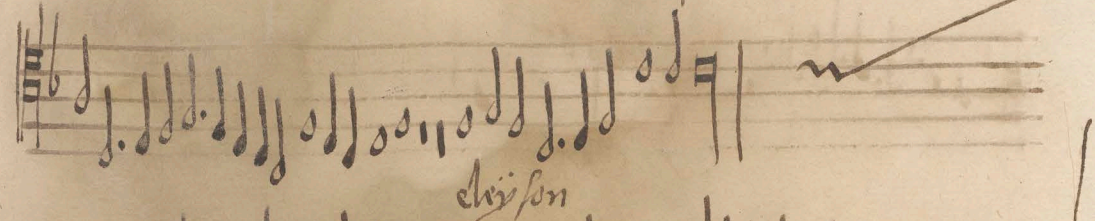 eleÿson